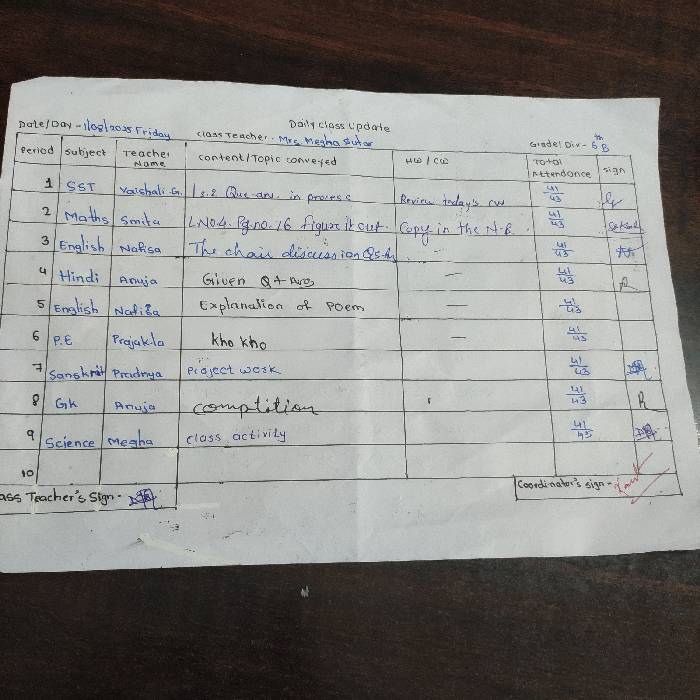 Daily class Update
Date/Day - 1/08/2025 Friday class Teacher - Mrs. Megha Sutar Grade/Div - 6th B
Period Subject Teacher Name content/Topic conveyed HW/CW Total Attendance sign
1 SST Vaishali G. Ls.2 Que-ans. in process Review today's cw 41/43
2 Maths Smita L.No4. Pg.no.16 figure it out. Copy in the N.B. 41/43
3 English Nafisa The chair discussion Qs-A - 41/43
4 Hindi Anuja Given Q + Ans — 41/43 R
5 English Nafisa Explanation of Poem — 41/43
6 P.E Prajakta kho kho — 41/43
7 Sanskrit Pradnya Project work 41/43
8 GK Anuja comptition 41/43 R
9 Science Megha class activity 41/43
10
ass Teacher's Sign - Coordinator's sign -